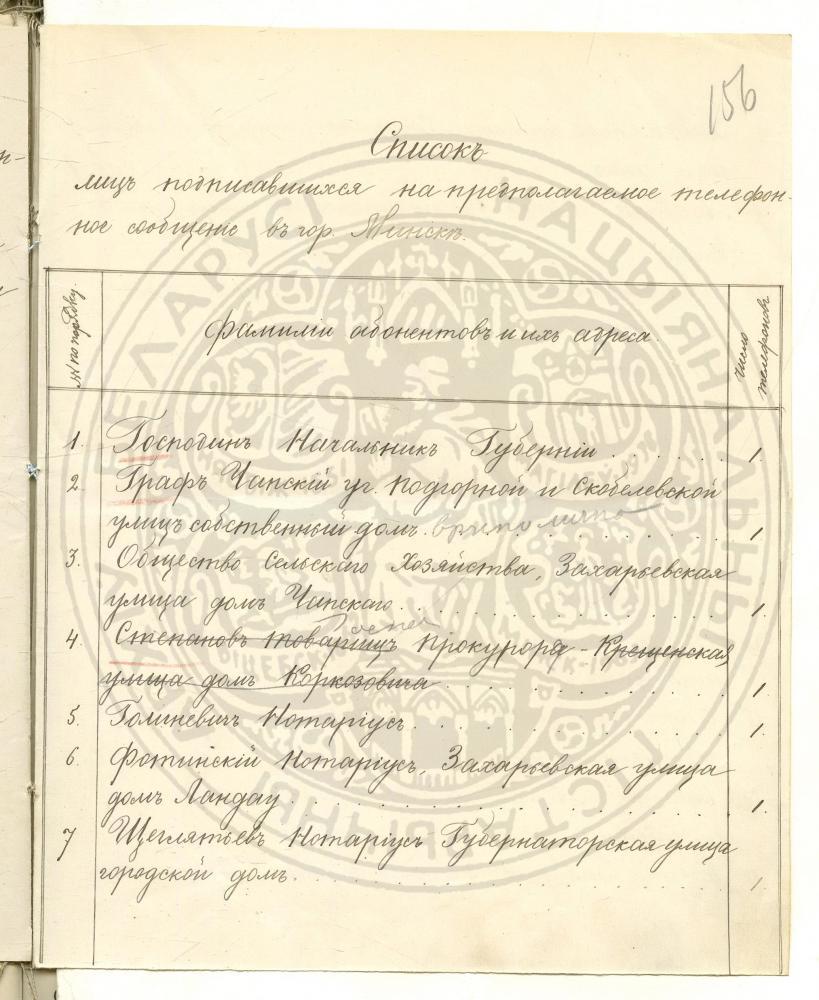 156
Списокъ
лицъ подписавшихся на предполагаемое телефон-
ное сообщеніе въ гор. Минскѣ.
№ по порядку.
Фамиліи абонентовъ и ихъ адреса.
Число телефоновъ
1. Господинъ Начальникъ Губерніи . . . . . . 1.
2. Графъ Чапскій уг. Подгорной и Скобелевской
улицъ собственный домъ. . . . . . . . 1.
3. Общество Сельскаго Хозяйства, Захарьевская
улица домъ Чапскаго. . . . . . . . . 1.
4. Степановъ товарищъ Прокурора - Крещенская
улица домъ Коркозовича . . . . . . . . 1.
5. Голиневичъ Нотаріусъ. . . . . . . . . 1.
6. Фотинскій Нотаріусъ, Захарьевская улица
домъ Ландау. . . . . . . . . . . 1.
7 Щеглятьевъ Нотаріусъ Губернаторская улица
городской домъ. . . . . . . . . . . 1.